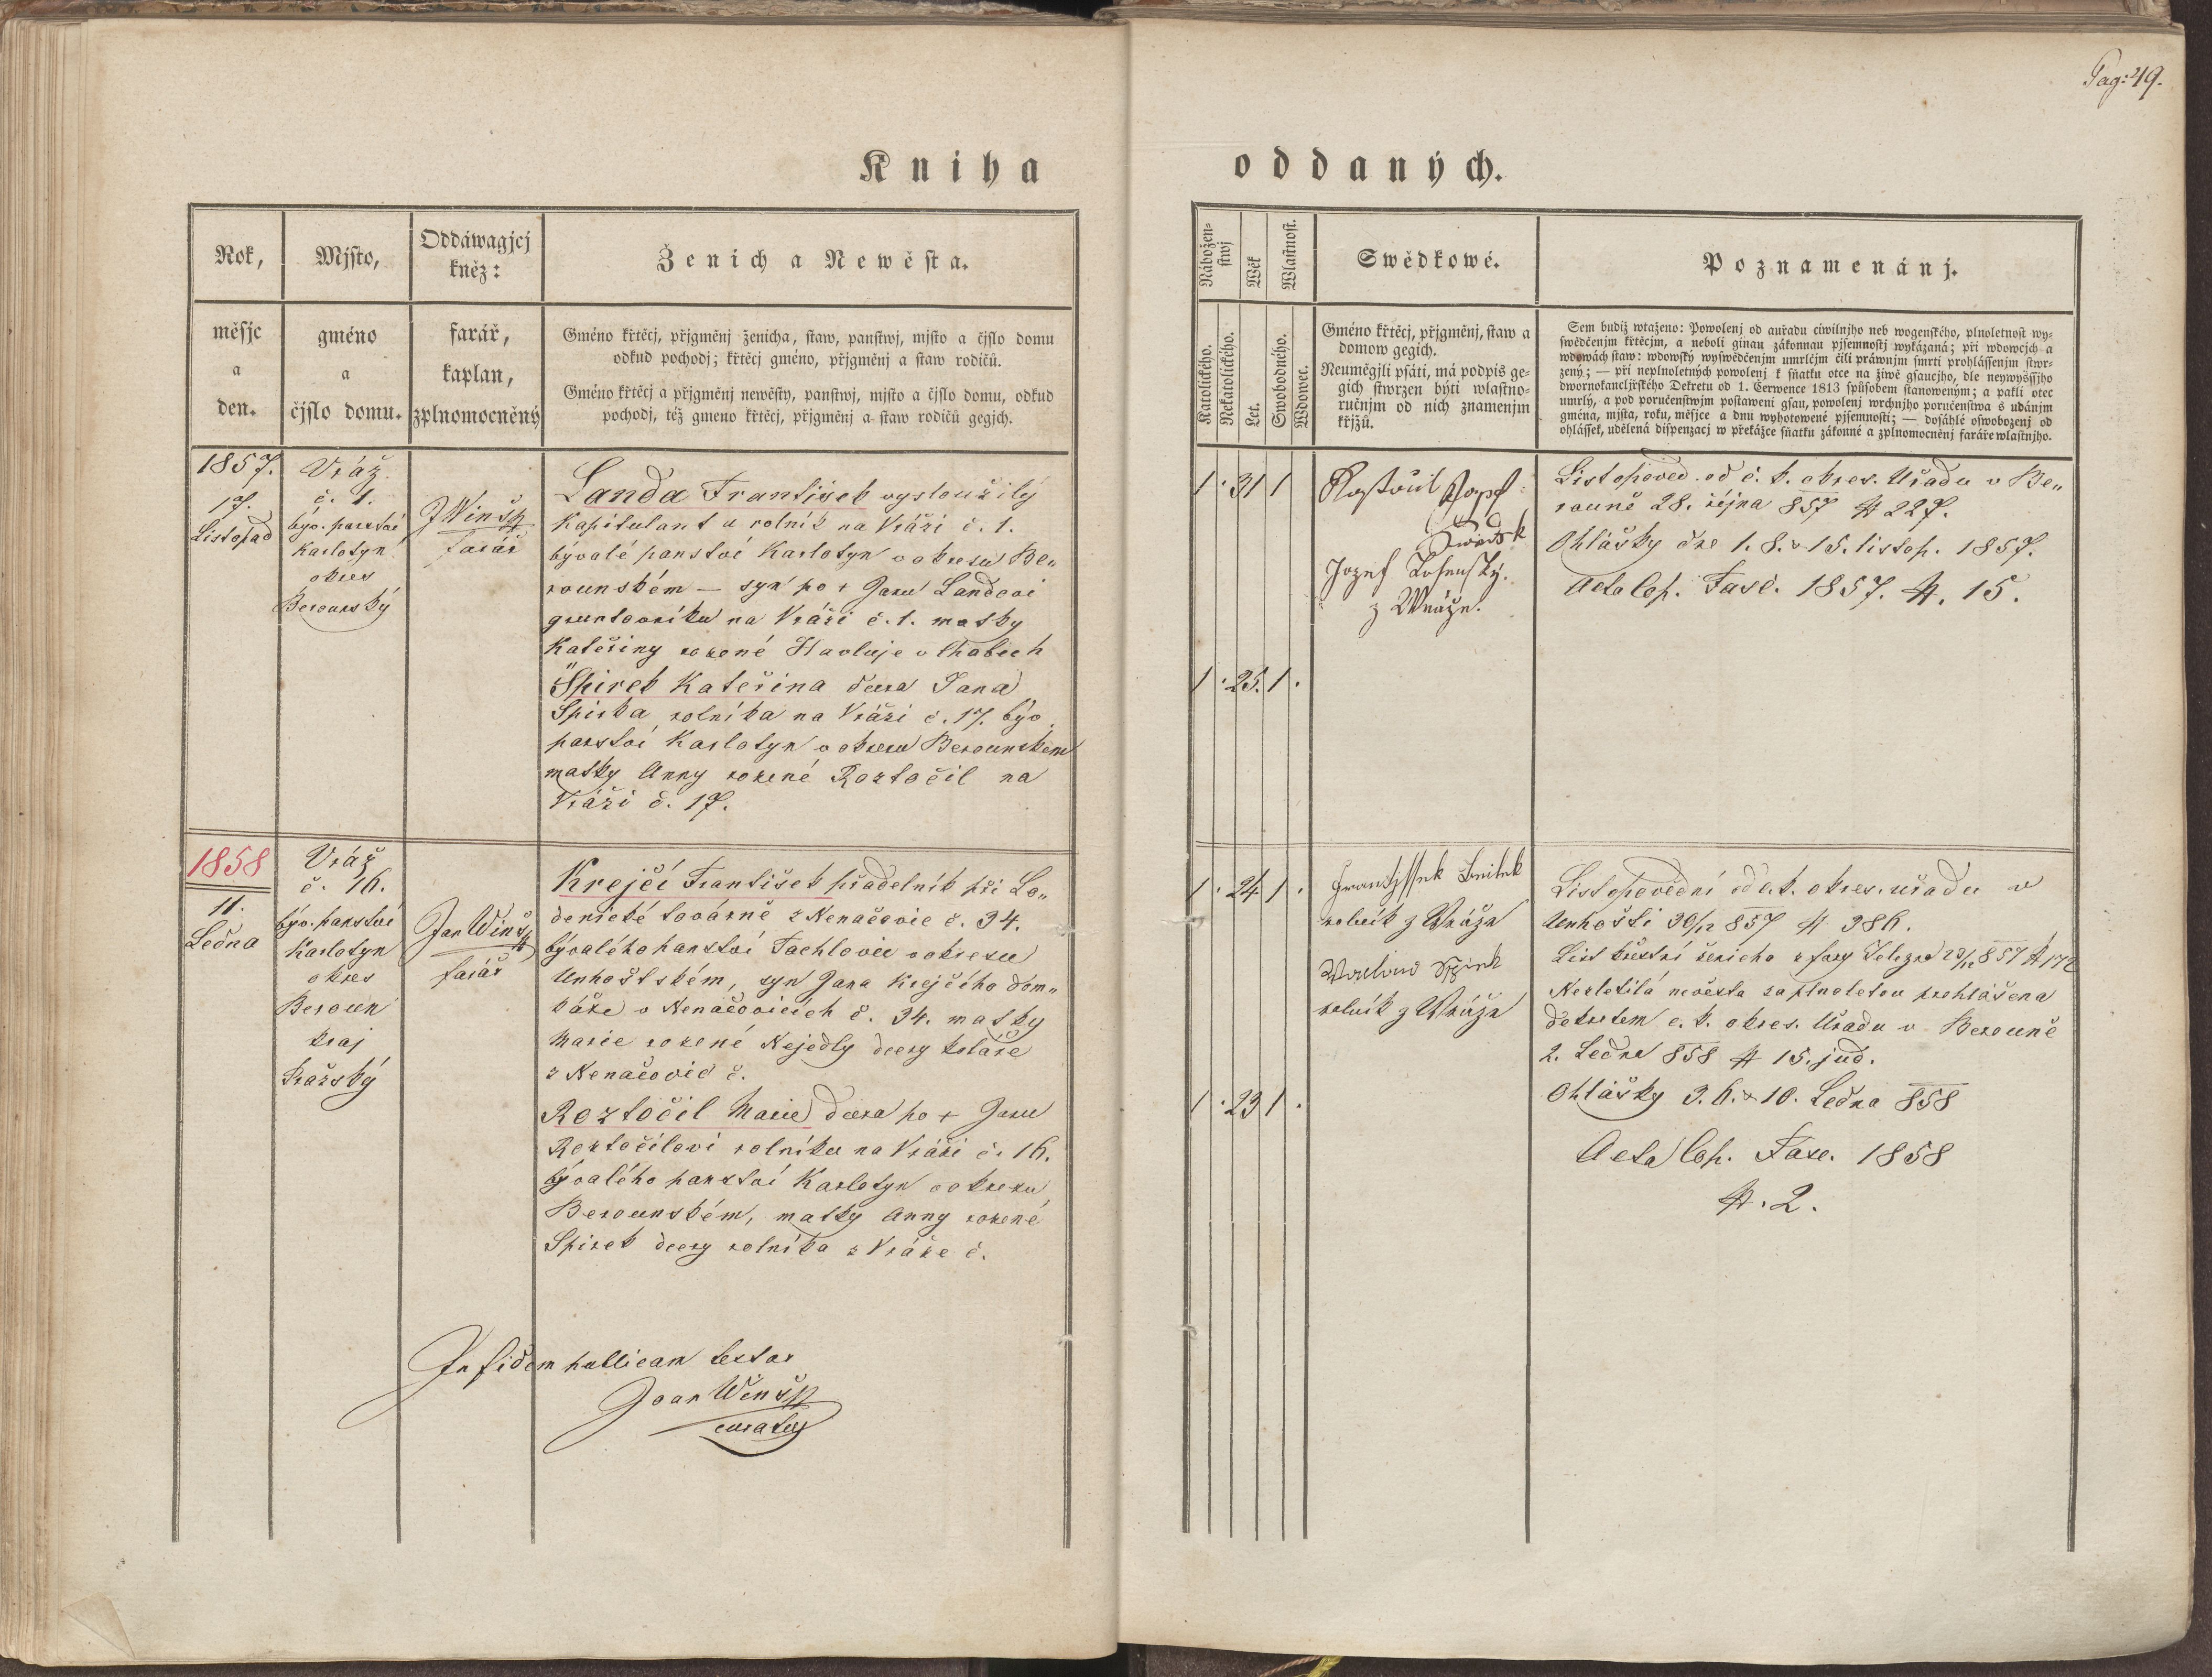 Pag: 49.
Kniha
oddaných.
Rok,
měsjc
a
den.
Mjsto,
gméno
a
čjslo domu.
Oddáwagjcj
kněz:
farář,
kaplan,
zplnomocněný
Ženich a Newěsta.
Gméno křtěcj, přjgměnj ženicha, staw, panstwj, mjsto a čjslo domu
odkud pochodj; křtěcj gméno, přjgměnj a staw rodičů.
Gméno křtěcj a přjgměnj newěsty, panstwj, mjsto a čjslo domu, odkud
pochodj, též gmeno křtěcj, přjgměnj a staw rodičů gegjch.
Nábožen-
stwj
Katolického.
Nekatolického.
Wěk
Let.
Wlastnost.
Swobodného.
Wdowec.
Swědkowé.
Gméno křtěcj, přjgměnj, staw a
domow gegich.
Neuměgjli psáti, má podpis ge-
gich stwrzen býti wlastno-
ručnjm od nich znamenjm
křjžů.
Poznamenánj.
Sem budiž wtaženo: Powolenj od auřadu ciwilnjho neb wogenského, plnoletnost wy-
swědčenjm křtěcjm, a neboli ginau zákonnau pjsemnostj wykázaná; při wdowcjch a
wdowách staw: wdowský wyswědčenjm umrlčjm čili práwnjm smrti prohlássenjm stwr-
zený; — při neplnoletných powolenj k sňatku otce na žiwě gsaucjho, dle neywyšssjho
dwornokancljřského Dekretu od 1. Čerwence 1813 spůsobem stanoweným; a pakli otec
umrlý, a pod poručenstwjm postaweni gsau, powolenj wrchnjho poručenstwa s udánjm
gména, mjsta, roku, měsjce a dnu wyhotowené pjsemnosti; — dosáhlé oswobozenj od
ohlássek, udělená dispenzacj w překážce sňatku zákonné a zplnomocněnj faráře wlastnjho.
1857.
17.
Listopad
Vráž
č. 1.
býv. panství
Karlotyn
okres
Berounský
J Winš
farář
Landa František vysloužilý
Kapitulant a rolník na Vráži č. 1.
bývalé panství Karlotyn v okresu Be„
rounském — syn po + Janu Landovi
gruntovníku na Vráži č. 1. matky
Kateřiny rozené Havluje v Chabech
Špirek Kateřina dcera Jana
Špirka rolníka na Vráži č. 17. býv.
panství Karlotyn v okresu Berounském
matky Anny rozené Roztočil na
Vráži č. 17.
1 · 31 1
1 · 25. 1 ·
Rostočil Josef
Swědek
Jozef
z Wráže.
Listopověd. od c. k. okres. Úřadu v Be„
rouně 28. října 857 # 227.
Ohlášky dne 1. 8. & 15. listop. 1857.
Acta Cop. Fasc. 1857. #. 15.
1858
11.
Ledna
Vráž
č. 16.
býv. panství
Karlotyn
okres
Beroun
kraj
Pražský
Jan Winš
farář
Krejčí František přadelník při Lo„
děnické továrně z Nenačovic č. 34.
bývalého panství Tachlovic v okresu
Unhošťském, syn Jana Krejčího dom„
káře v Nenačovicích č. 34. matky
Marie rozené Nejedlý dcery koláře
z Nenačovic č.
Roztočil Marie dcera po + Janu
Roztočilovi rolníku na Vráži č. 16.
bývalého panství Karlotyn v okresu
Berounském, matky Anny rozené
Špirek dcery rolníka z Vráže č.
1 · 24 1 ·
1 · 23 1 ·
rolník z Wráže
rolník z Wráže
Listopovědní od c. k. okres. úřadu v
Unhošti 30/12 857 # 386.
List křestní ženicha z fary Železná 857
Nezletilá nevěsta za plnoletou prohlášena
dekretem c. k. okres. Úřadu v Berouně
2. Ledna 858 # 15. jud.
Ohlášky 3. 6. & 10. Ledna 858
Acta Cop. Fasc. 1858
#. 2.
In fidem publicam testor
Joan Winš
curatus